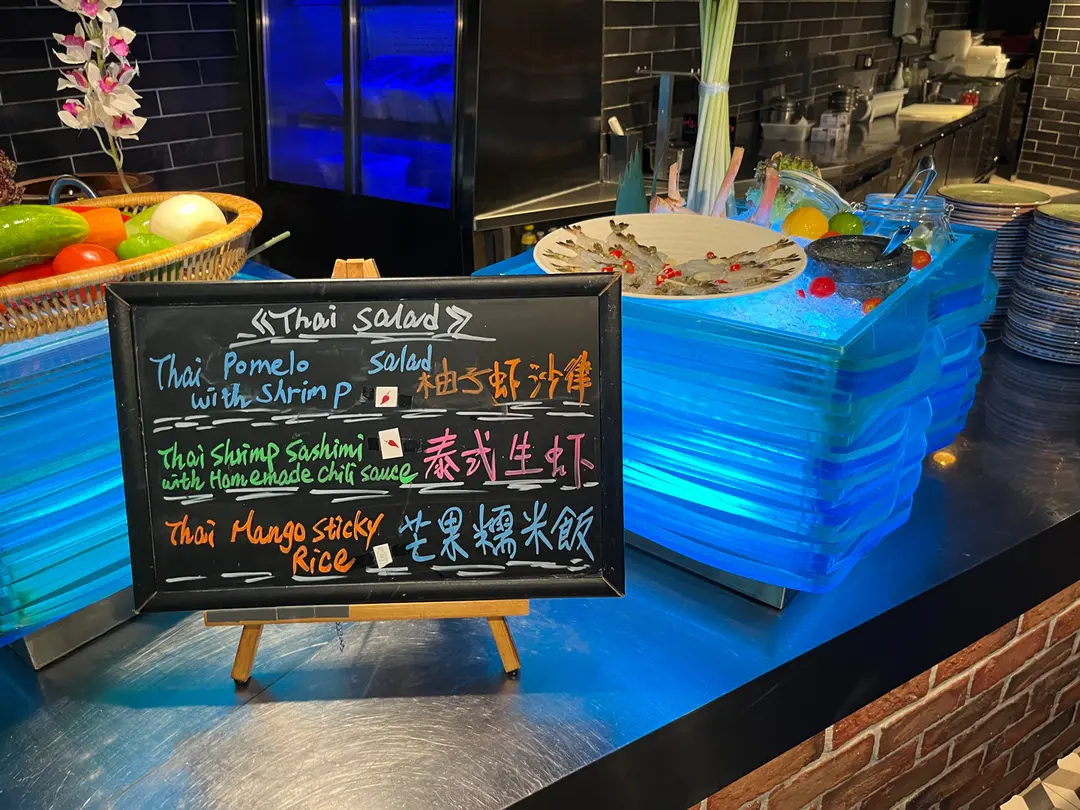 《Thai Salad》
Thai Pomelo Salad
with Shrimp 柚子虾沙律
Thai Shrimp Sashimi
with Homemade Chili Sauce 泰式生虾
Thai Mango Sticky
Rice 芒果糯米飯